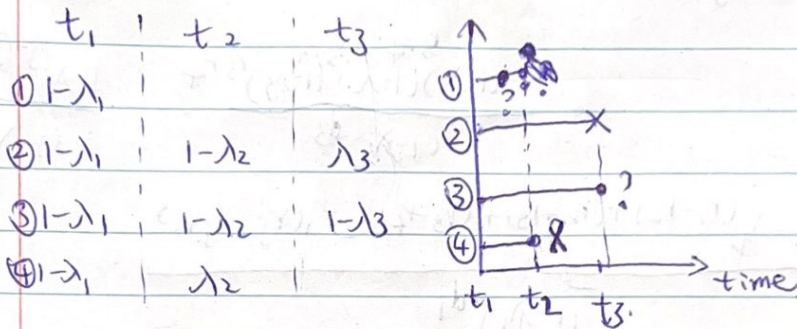 t₁ t₂ t₃
① 1-λ₁
② 1-λ₁ 1-λ₂ λ₃
③ 1-λ₁ 1-λ₂ 1-λ₃
④ 1-λ₁ λ₂
① ?
② ×
③ ?
④
t₁ t₂ t₃. time